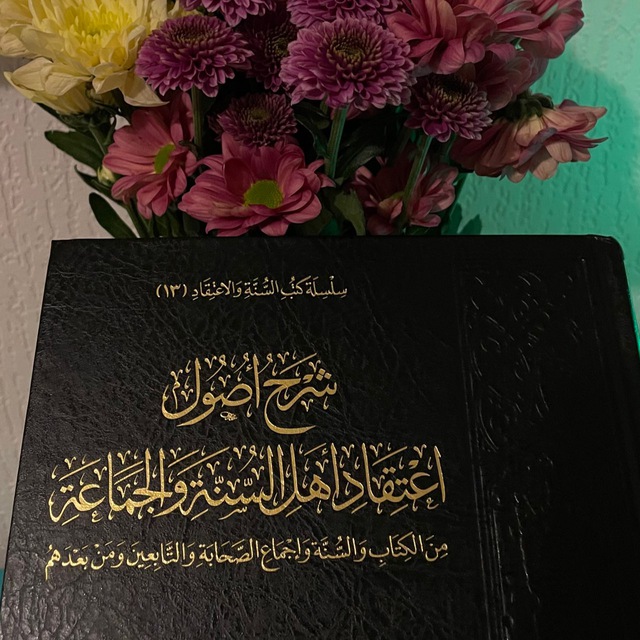 سِلْسِلَة كُتُب السُّنَّة وَالِاعْتِقَادِ (١٣)
شَرْحُ أُصُول
اعْتِقَادِ أَهْلِ السُّنَّةِ وَالْجَمَاعَةِ
مِنَ الْكِتَابِ وَالسُّنَّةِ وَإِجْمَاعِ الصَّحَابَةِ وَالتَّابِعِينَ وَمَنْ بَعْدَهُمْ